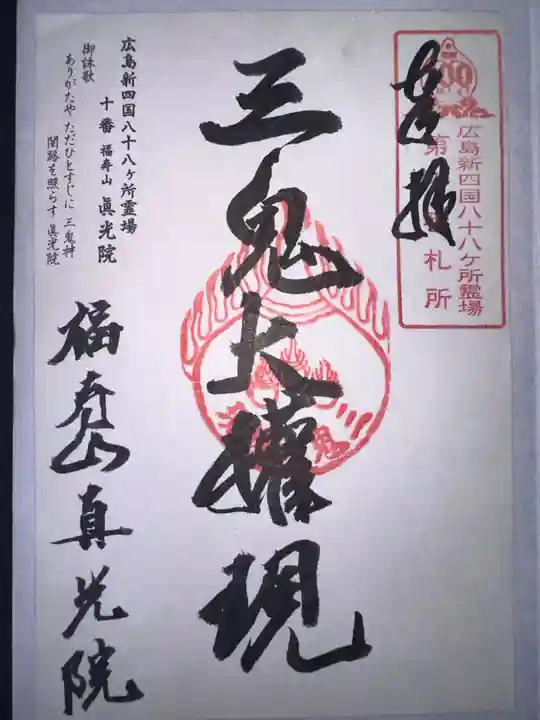 奉拝
広島新四国八十八ケ所霊場
第十札所
三鬼大権現
福寿山真光院
広島新四国八十八ヶ所霊場
十番 福寿山 眞光院
御詠歌
ありがたや ただひとすじに 三鬼神
闇路を照らす 眞光院